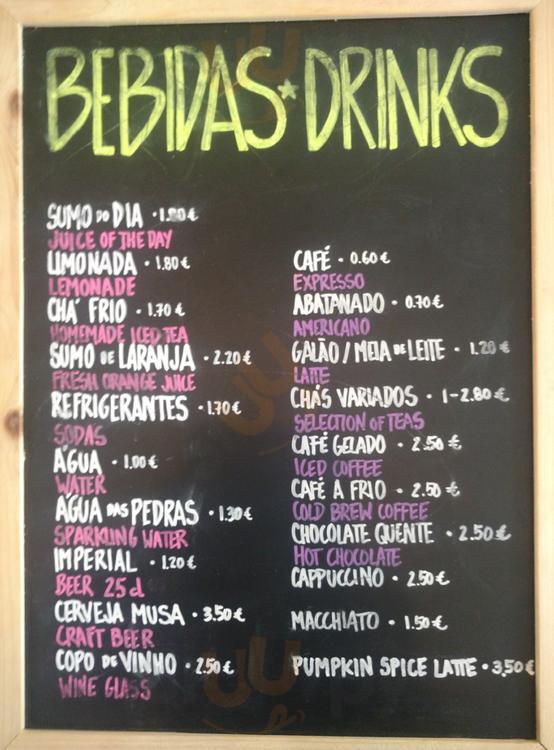 BEBIDAS * DRINKS
SUMO DO DIA • 1.80€
JUICE OF THE DAY
LIMONADA • 1.80€
LEMONADE
CHÁ FRIO • 1.70€
HOMEMADE ICED TEA
SUMO DE LARANJA • 2.20€
FRESH ORANGE JUICE
REFRIGERANTES • 1.70€
SODAS
ÁGUA • 1.00€
WATER
ÁGUA DAS PEDRAS • 1.30€
SPARKLING WATER
IMPERIAL • 1.20€
BEER 25cl
CERVEJA MUSA • 3.50€
CRAFT BEER
COPO DE VINHO • 2.50€
WINE GLASS
CAFÉ • 0.60€
EXPRESSO
ABATANADO • 0.70€
AMERICANO
GALÃO / MEIA DE LEITE • 1.20€
LATTE
CHÁS VARIADOS • 1-2.80€
SELECTION OF TEAS
CAFÉ GELADO • 2.50€
ICED COFFEE
CAFÉ A FRIO • 2.50€
COLD BREW COFFEE
CHOCOLATE QUENTE • 2.50€
HOT CHOCOLATE
CAPPUCCINO • 2.50€
MACCHIATO • 1.50€
PUMPKIN SPICE LATTE • 3,50€